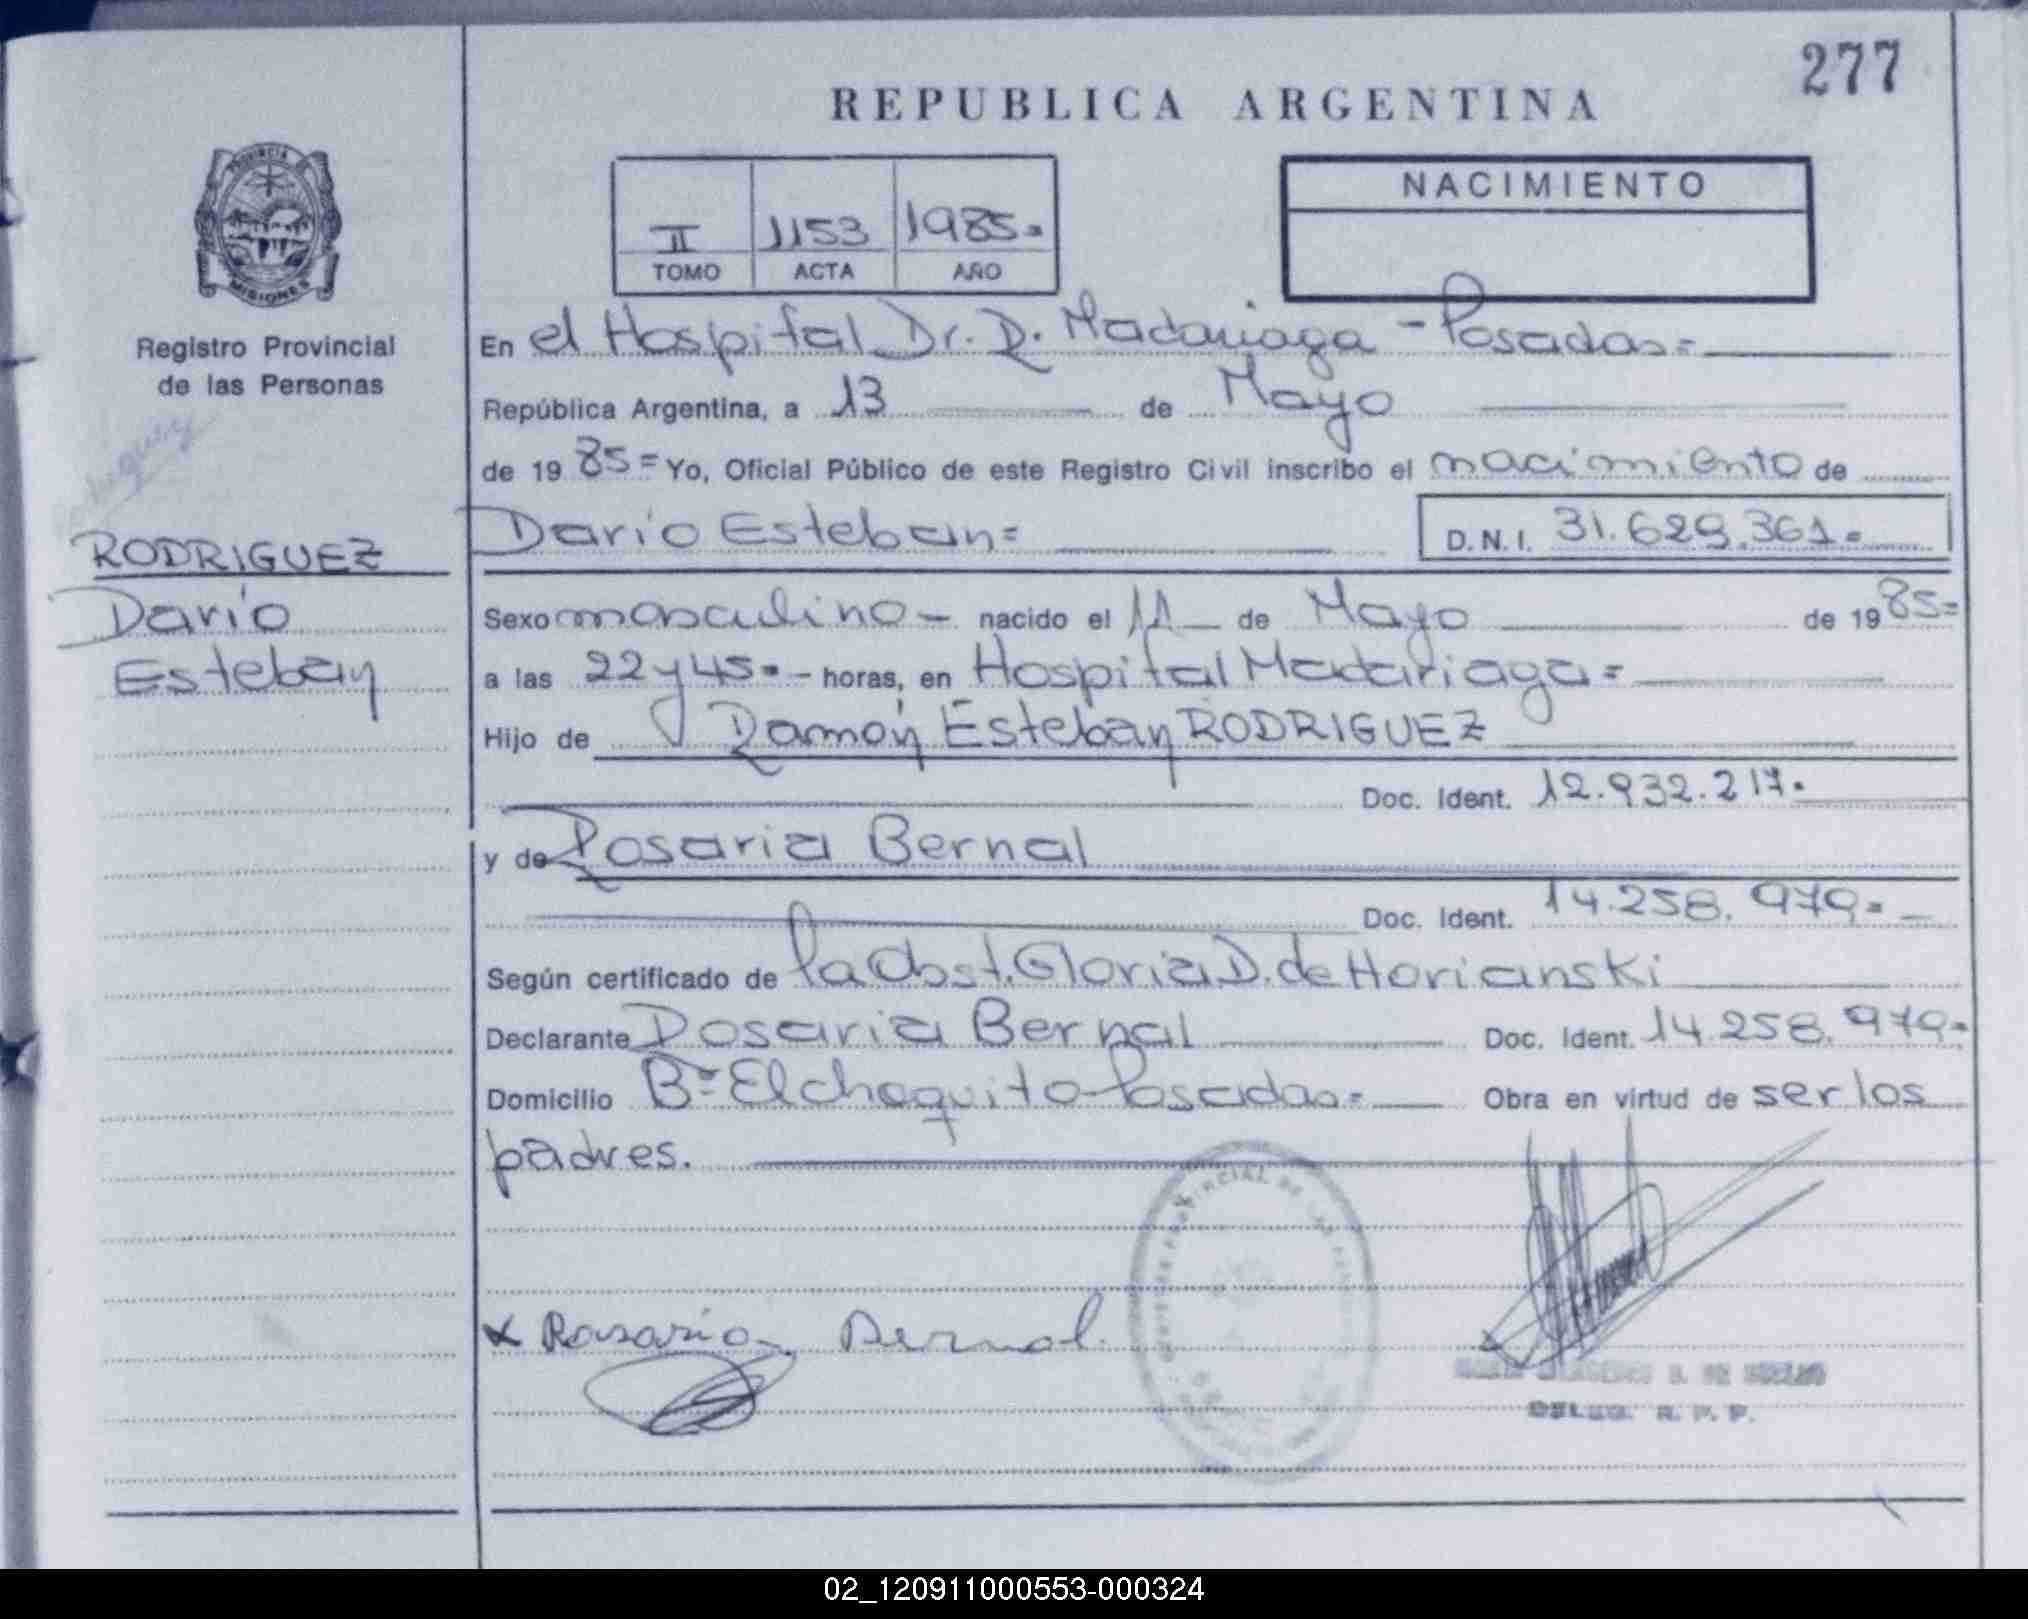 277
REPUBLICA ARGENTINA
PROVINCIA
MISIONES
Registro Provincial
de las Personas
RODRIGUEZ
Darío
Esteban
II 1153 1985=
TOMO ACTA AÑO
NACIMIENTO
En el Hospital Dr. R. Madariaga - Posadas=
República Argentina, a 13 de Mayo
de 19 85= Yo, Oficial Público de este Registro Civil inscribo el nacimiento de
Darío Esteban=
D.N.I. 31.629.361=
Sexo masculino- nacido el 11 de Mayo de 19 85=
a las 22 y 45=- horas, en Hospital Madariaga=
Hijo de Ramón Esteban RODRIGUEZ
Doc. Ident. 12.932.217.
y de Rosaria Bernal
Doc. Ident. 14.258.979=
Según certificado de la Obst. Gloria D. de Horianski
Declarante Rosaria Bernal Doc. Ident. 14.258.979=
Domicilio Bº El chaquito-Posadas= Obra en virtud de ser los
padres.
x Rosario Bernal.
DELEG. R. P. P.
02_120911000553-000324